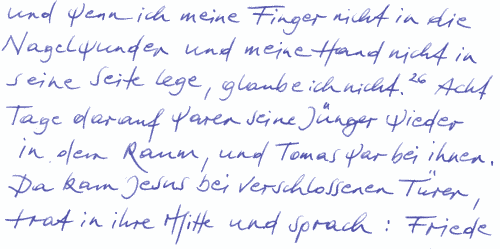 und wenn ich meine Finger nicht in die
Nagelwunden und meine Hand nicht in
seine Seite lege, glaube ich nicht. 26 Acht
Tage darauf waren seine Jünger wieder
in dem Raum, und Tomas war bei ihnen.
Da kam Jesus bei verschlossenen Türen,
trat in ihre Mitte und sprach: Friede